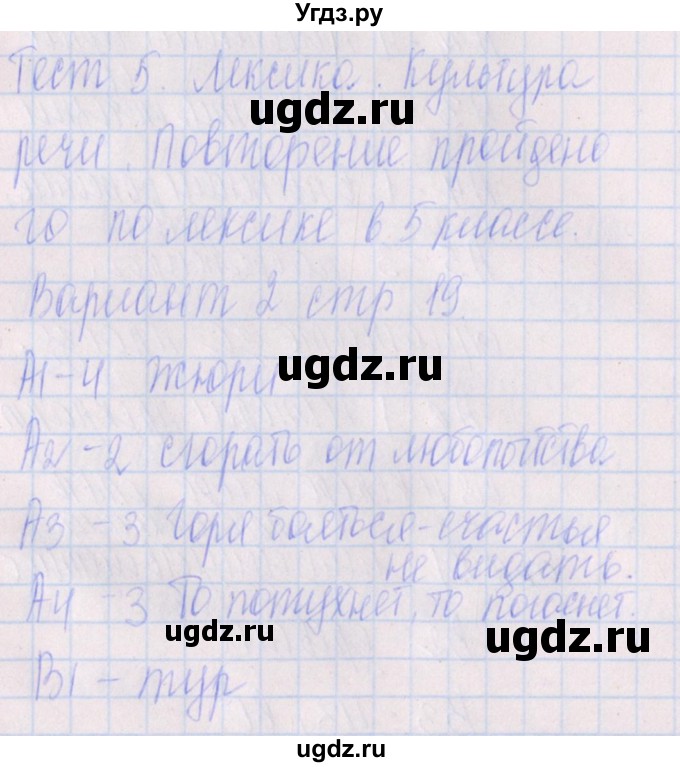 Угдз.ру
Тест 5. Лексика. Культура
ugdz.ru
речи. Повторение пройдено
го по лексике в 5 классе.
Вариант 2 стр 19.
ugdz.ru
А1-4 жюри
ugdz.ru
А2-2 сгорать от любопытства
А3-3 Горя бояться-счастья
не видать.
А4-3 То потухнет, то погаснет.
ugdz.ru
ugdz.ru
В1-тур
ugdz.ru